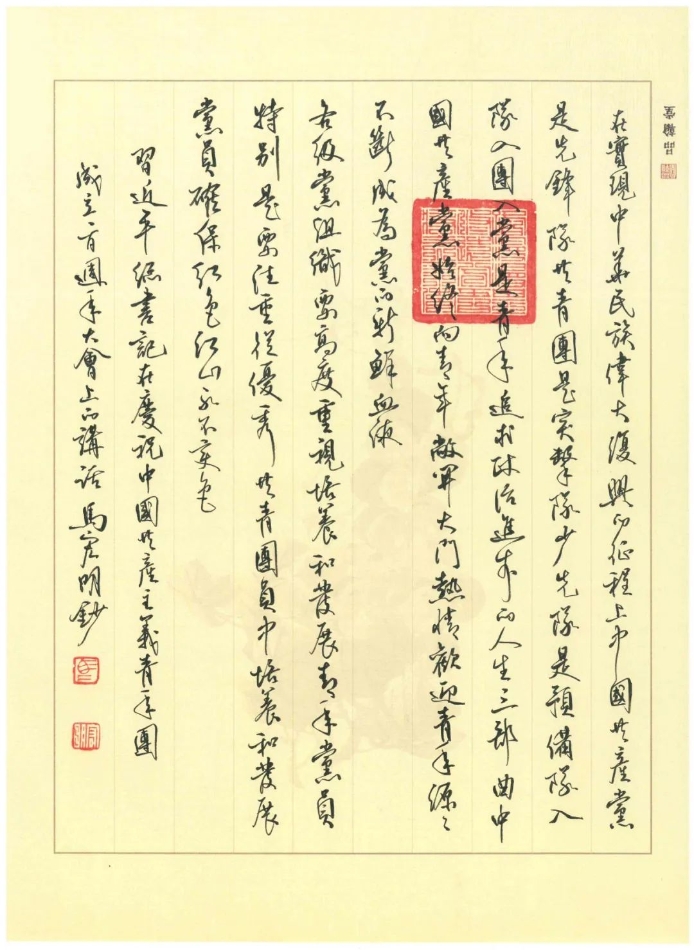 在實現中華民族偉大復興的征程上中國共產黨
是先鋒隊共青團是突擊隊少先隊是預備隊入
隊入團入黨是青年追求政治進步的人生三部曲中
國共產黨始終向青年敞開大門熱情歡迎青年源〻
不斷成為黨的新鮮血液
各級黨組織要高度重視培養和發展青年黨員
特别是要注重從優秀共青團員中培養和發展
黨員確保紅色江山永不變色
習近平總書記在慶祝中國共產主義青年團
成立一百週年大會上的講話 馬宏明鈔
品翰堂